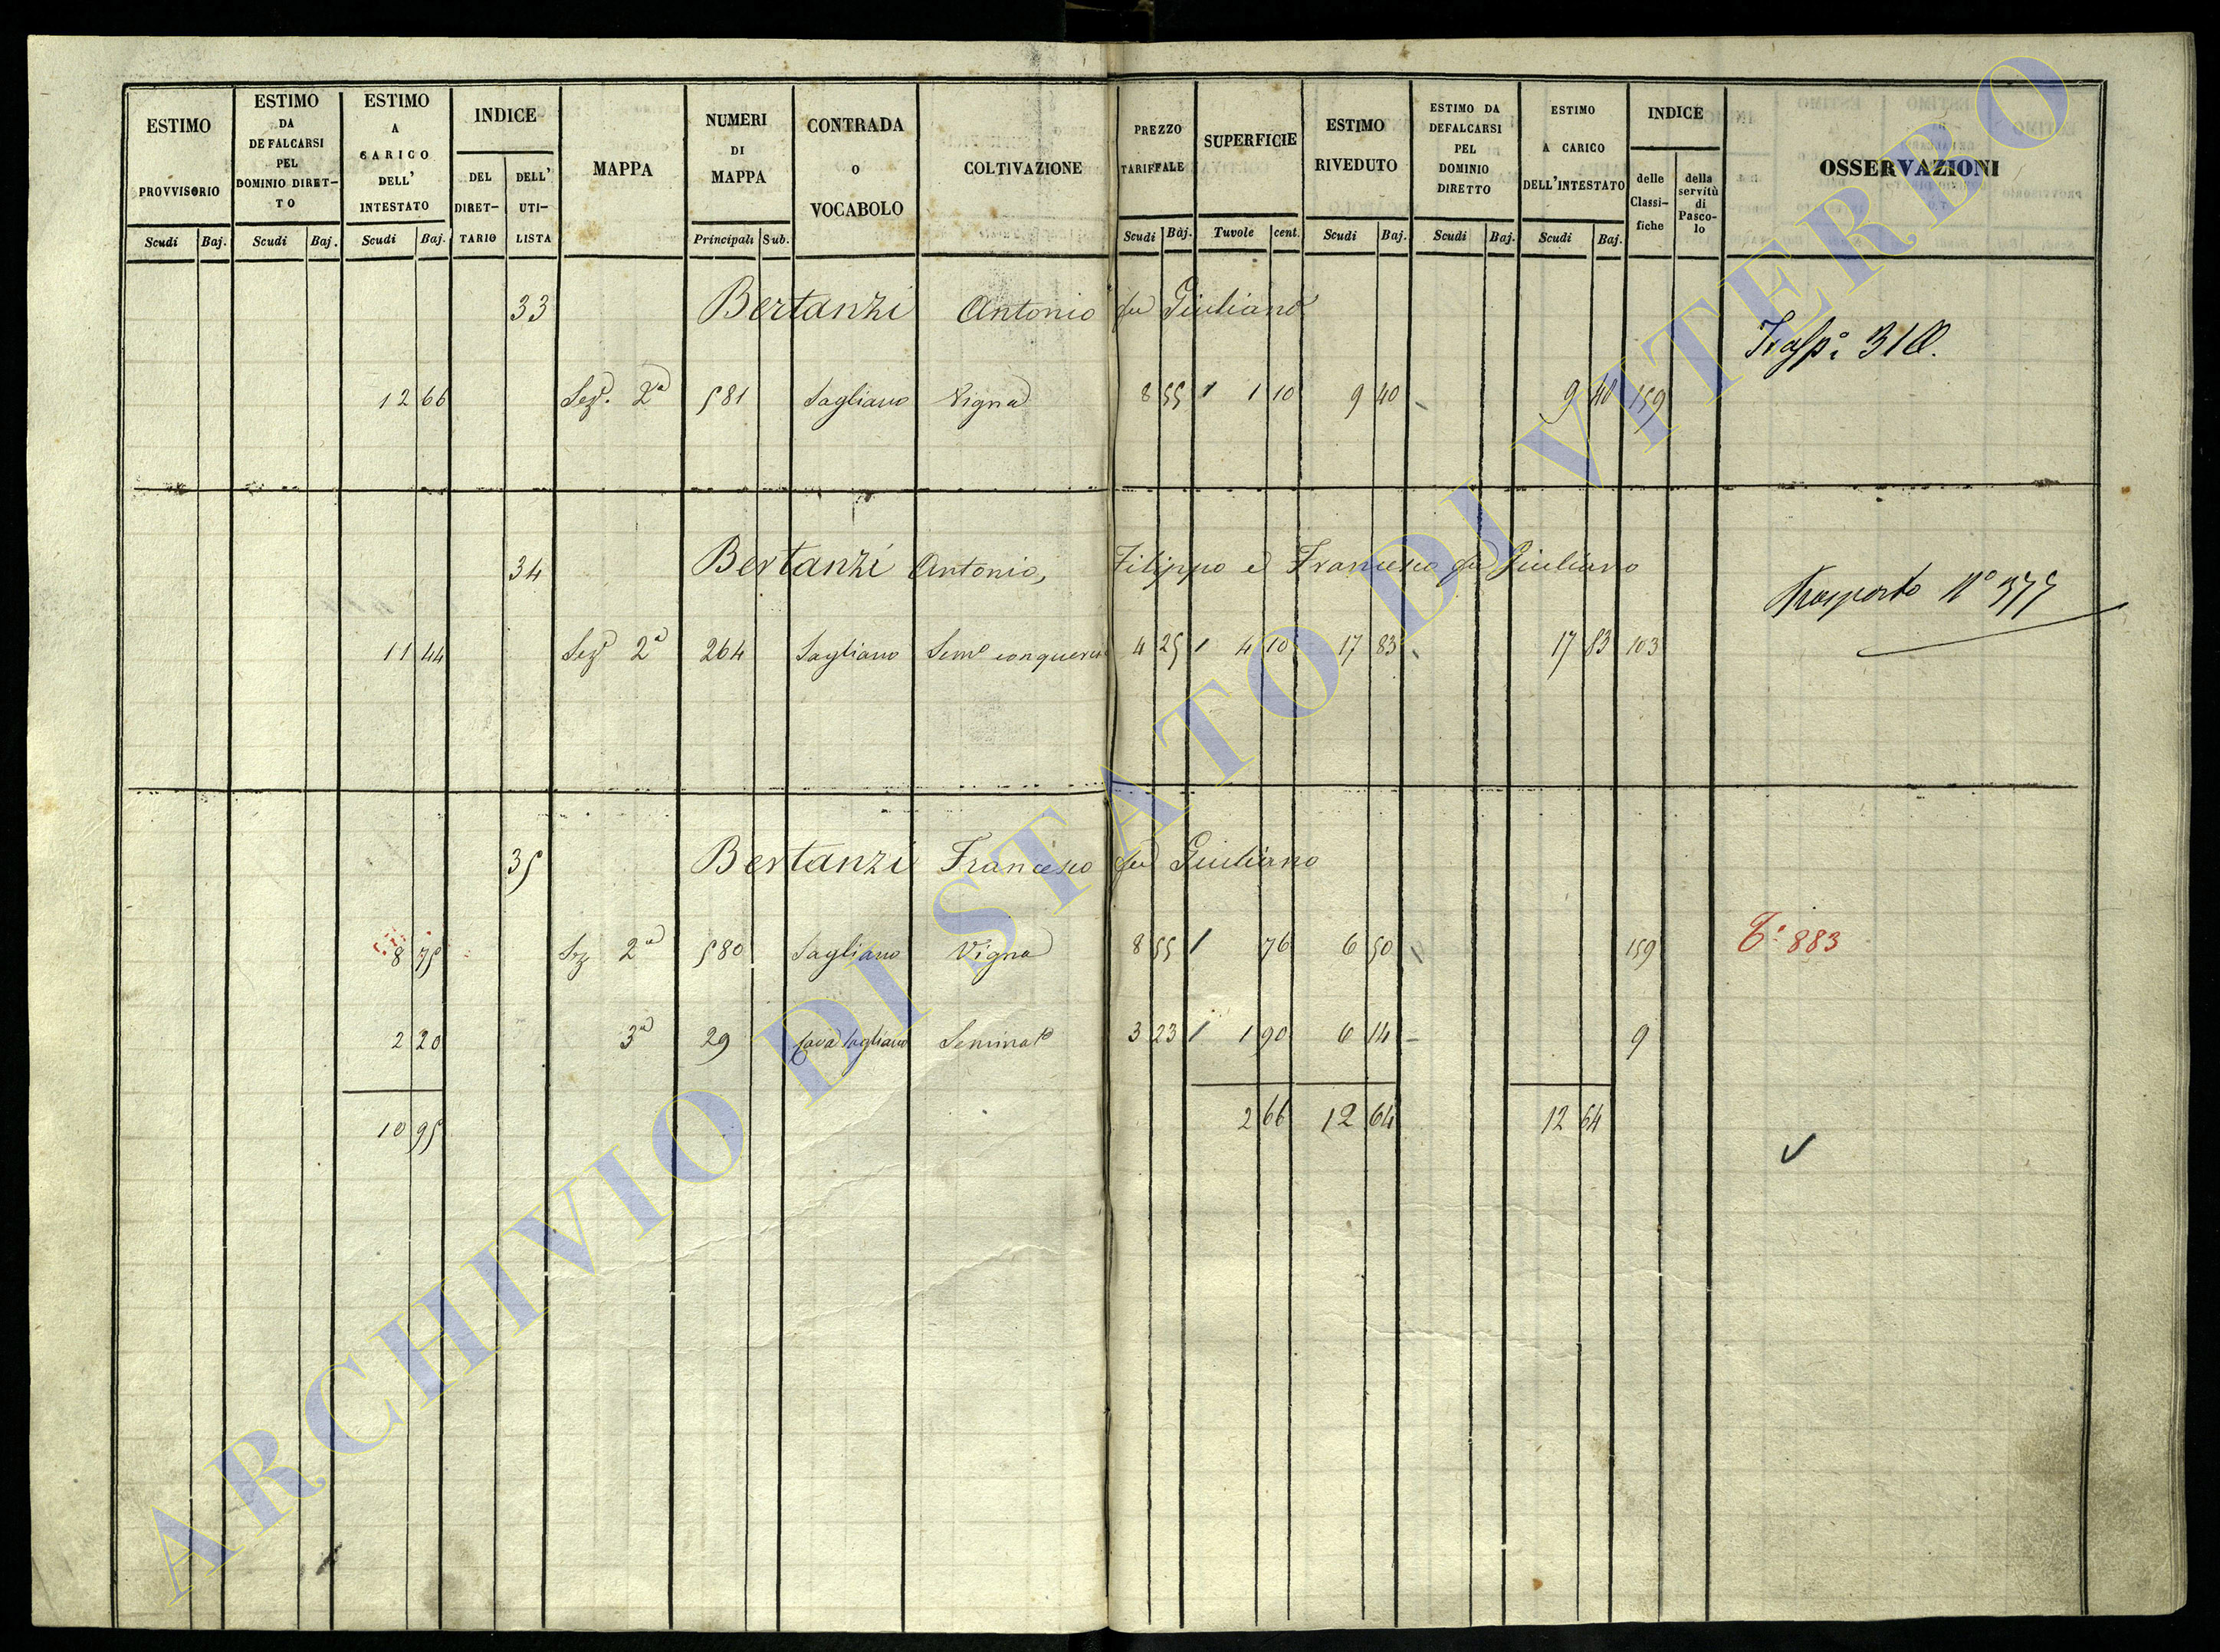 ESTIMO PROVVISORIO Scudi Baj.
ESTIMO DA DEFALCARSI PEL DOMINIO DIRET-TO Scudi Baj.
ESTIMO A CARICO DELL' INTESTATO Scudi Baj.
INDICE DEL DIRET-TARIO DELL' UTI-LISTA
MAPPA
NUMERI DI MAPPA Principali Sub.
CONTRADA O VOCABOLO
COLTIVAZIONE
PREZZO TARIFFALE Scudi Baj.
SUPERFICIE Tuvole cent.
ESTIMO RIVEDUTO Scudi Baj.
ESTIMO DA DEFALCARSI PEL DOMINIO DIRETTO Scudi Baj.
ESTIMO A CARICO DELL'INTESTATO Scudi Baj.
INDICE delle Classi-fiche della servitù di Pasco-lo
OSSERVAZIONI
33 Bertanzi Antonio fu Giuliano
12 66 Sez. 2a 581 Sagliano Vigna 8 55 1 10 9 40 9 40 159
34 Bertanzi Antonio, Filippo e Francesco fu Giuliano
Trasporto No 375
11 44 Seze 2a 264 Sagliano Semo con querce 4 25 4 10 17 83 17 83 103
35 Bertanzi Francesco fu Giuliano
8 75 Sez 2a 580 Sagliano Vigna 8 55 76 6 50 159 T: 883
2 20 3a 29 Cava Sagliano Seminato 3 23 1 90 6 14 9
10 95 2 66 12 64 12 64
ARCHIVIO DI STATO DI VITERBO